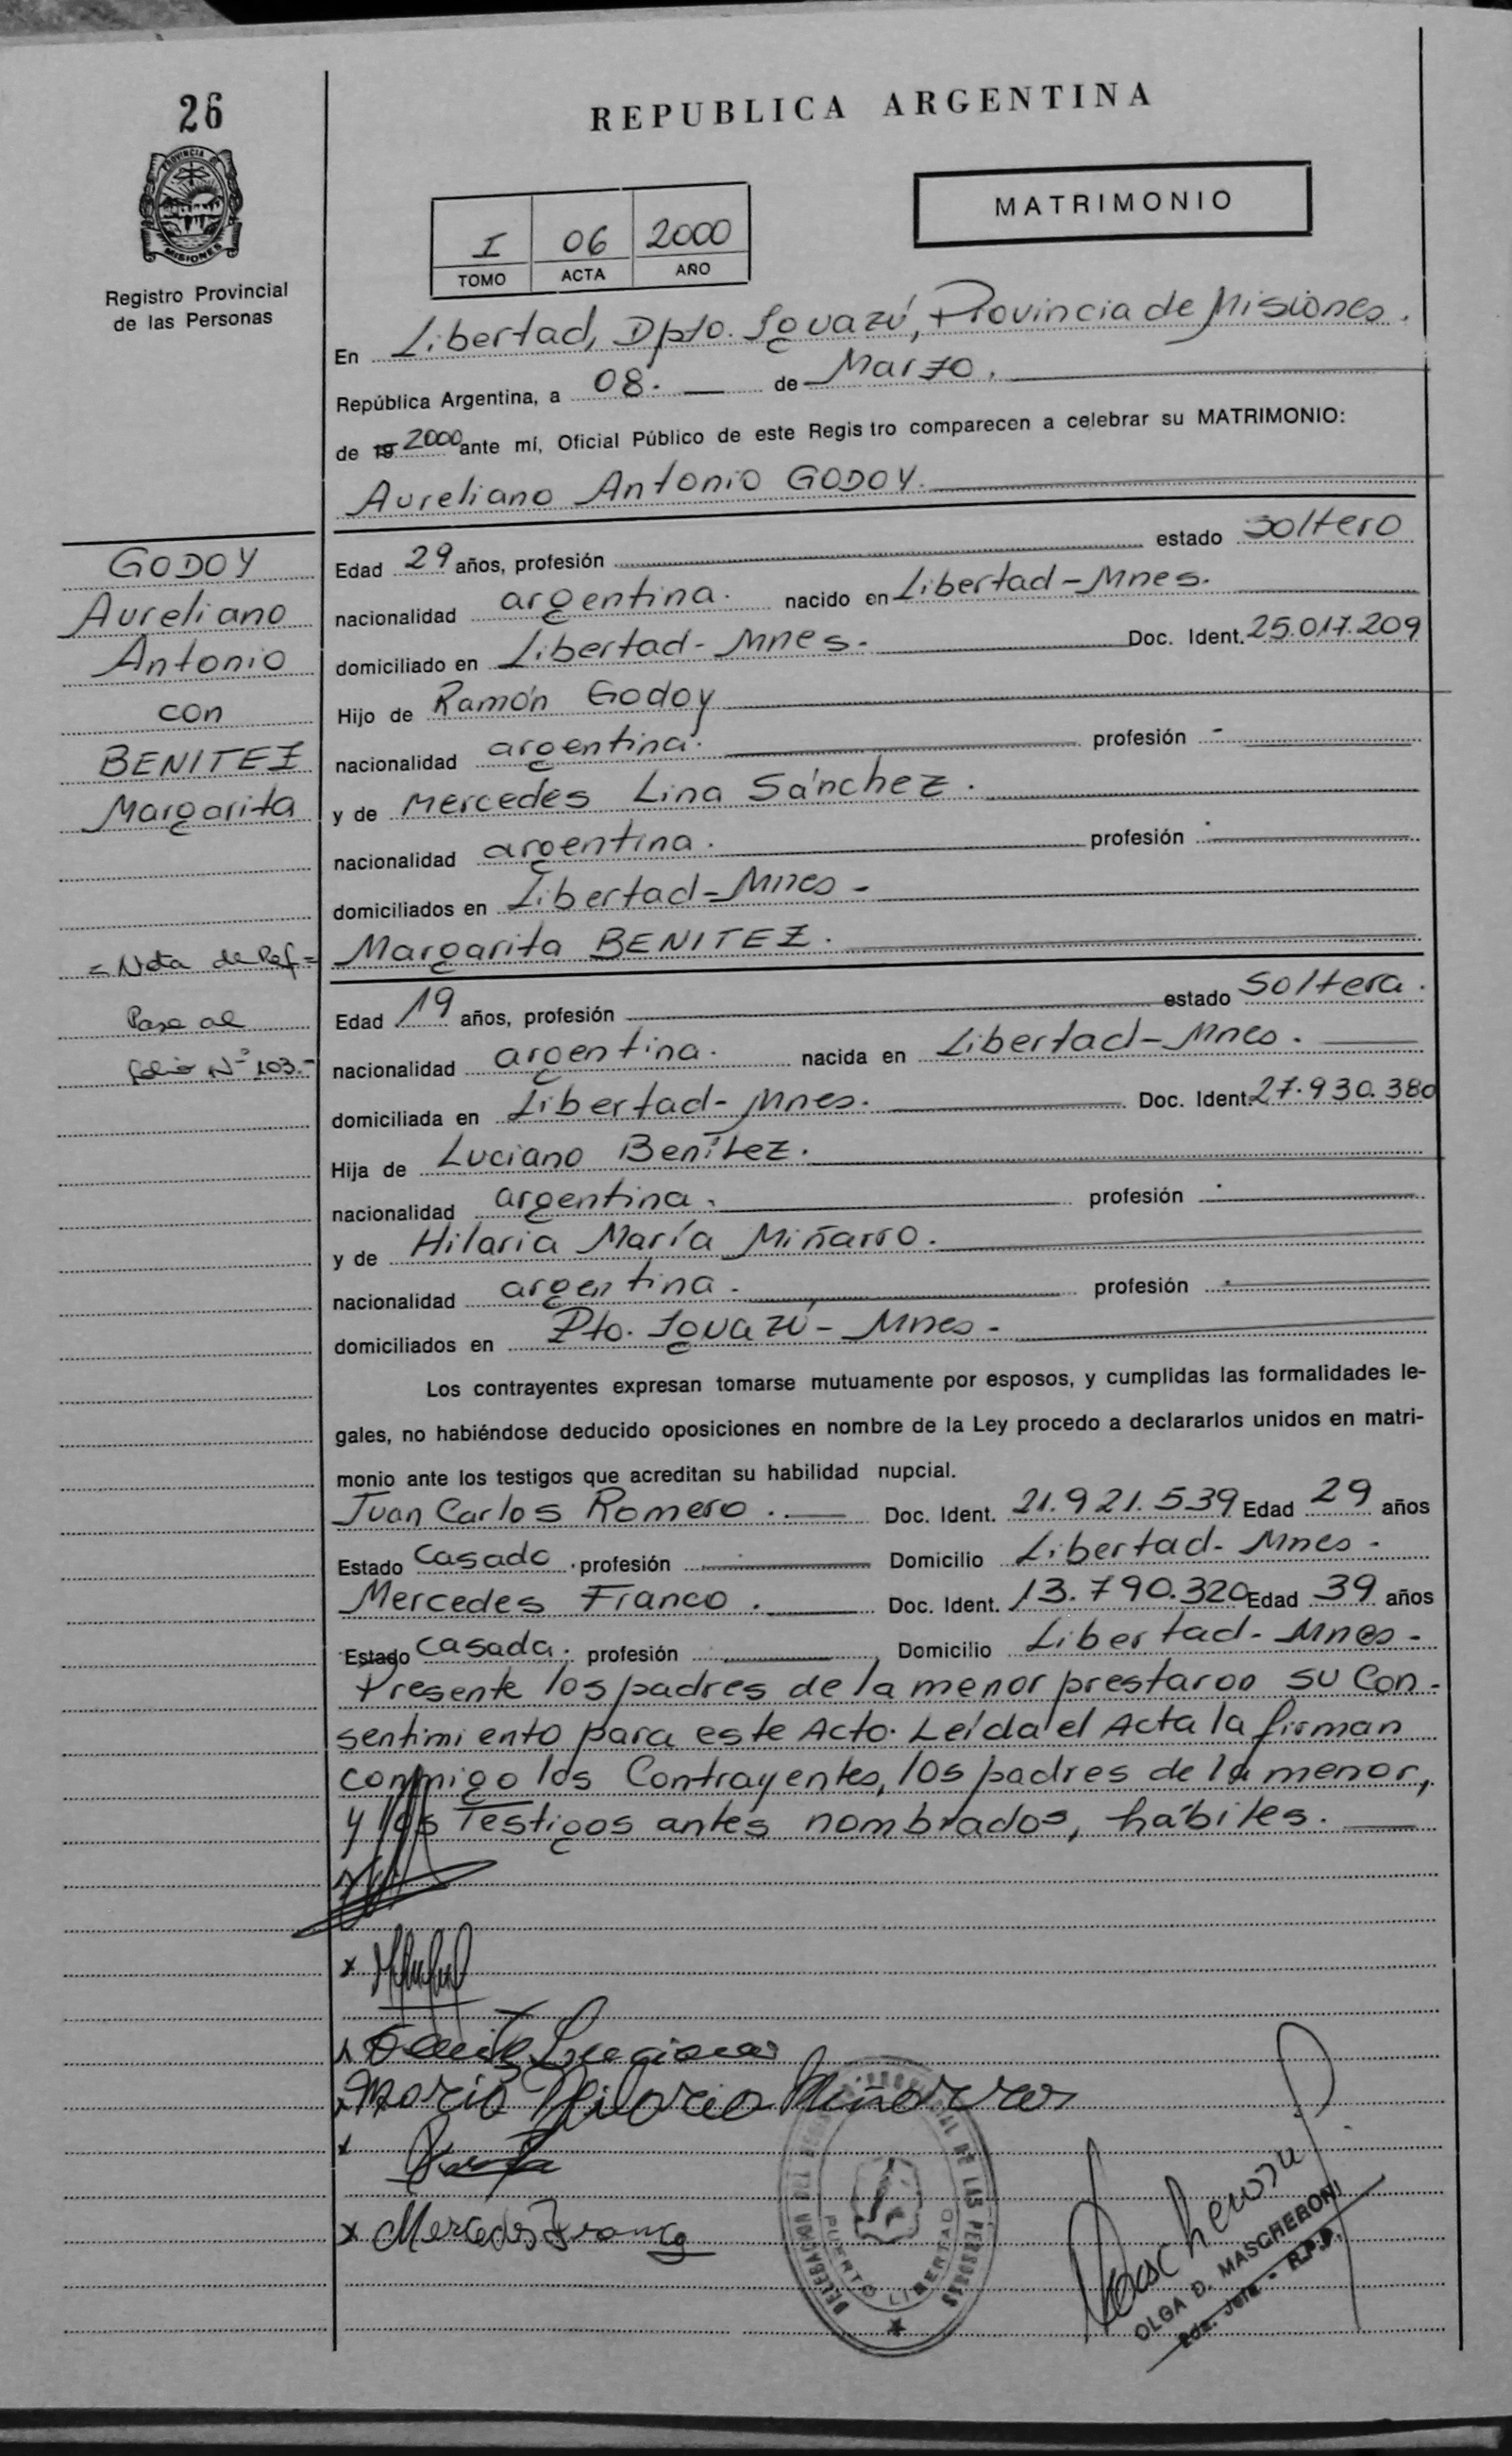 26
PROVINCIA DE
MISIONES
Registro Provincial
de las Personas
REPUBLICA ARGENTINA
MATRIMONIO
I 06 2000
TOMO ACTA AÑO
En Libertad, Dpto. Iguazú, Provincia de Misiones.
República Argentina, a 08. de Marzo.
de 19 2000 ante mí, Oficial Público de este Regis tro comparecen a celebrar su MATRIMONIO:
Aureliano Antonio GODOY.
GODOY
Aureliano
Antonio
con
BENITEZ
Margarita
= Nota de Ref =
Pasa al
folio Nº 103.-
Edad 29 años, profesión estado Soltero
nacionalidad argentina. nacido en Libertad - Mnes.
domiciliado en Libertad - Mnes. Doc. Ident. 25.017.209
Hijo de Ramón Godoy
nacionalidad argentina. profesión -
y de Mercedes Lina Sánchez.
nacionalidad argentina. profesión
domiciliados en Libertad - Mnes -
Margarita BENITEZ.
Edad 19 años, profesión estado Soltera.
nacionalidad argentina. nacida en Libertad - Mnes.
domiciliada en Libertad - Mnes. Doc. Ident. 27.930.380
Hija de Luciano Benítez.
nacionalidad argentina. profesión
y de Hilaria María Miñarro.
nacionalidad argentina. profesión
domiciliados en Pto. Iguazú - Mnes -
Los contrayentes expresan tomarse mutuamente por esposos, y cumplidas las formalidades le-
gales, no habiéndose deducido oposiciones en nombre de la Ley procedo a declararlos unidos en matri-
monio ante los testigos que acreditan su habilidad nupcial.
Juan Carlos Romero. Doc. Ident. 21.921.539 Edad 29 años
Estado Casado. profesión Domicilio Libertad - Mnes.
Mercedes Franco. Doc. Ident. 13.790.320 Edad 39 años
Estado Casada. profesión Domicilio Libertad - Mnes -
Presente los padres de la menor prestaron su Con-
sentimiento para este Acto. Leída el Acta la firman
conmigo los Contrayentes, los padres de la menor,
y los Testigos antes nombrados, hábiles.
x
Benitez Luciano
Maria Hilaria Miñarro
x
x Mercedes Franco
DELEGACION DEL REGISTRO PROVINCIAL DE LAS PERSONAS
PUERTO LIBERTAD
Mascheroni
OLGA D. MASCHERONI
Jefa - R.P.P.